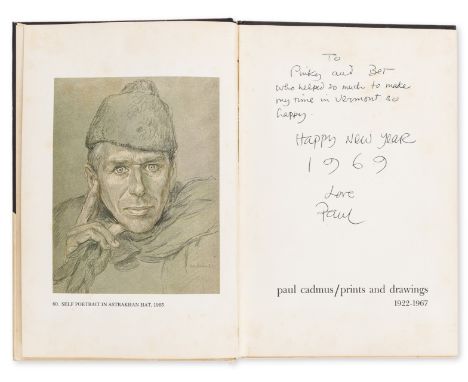 60. SELF PORTRAIT IN ASTRAKHAN HAT, 1965
To
Pinky and Bet
who helped so much to make
my time in Vermont so
happy.
Happy New Year
1969
Love
Paul
paul cadmus/prints and drawings
1922-1967